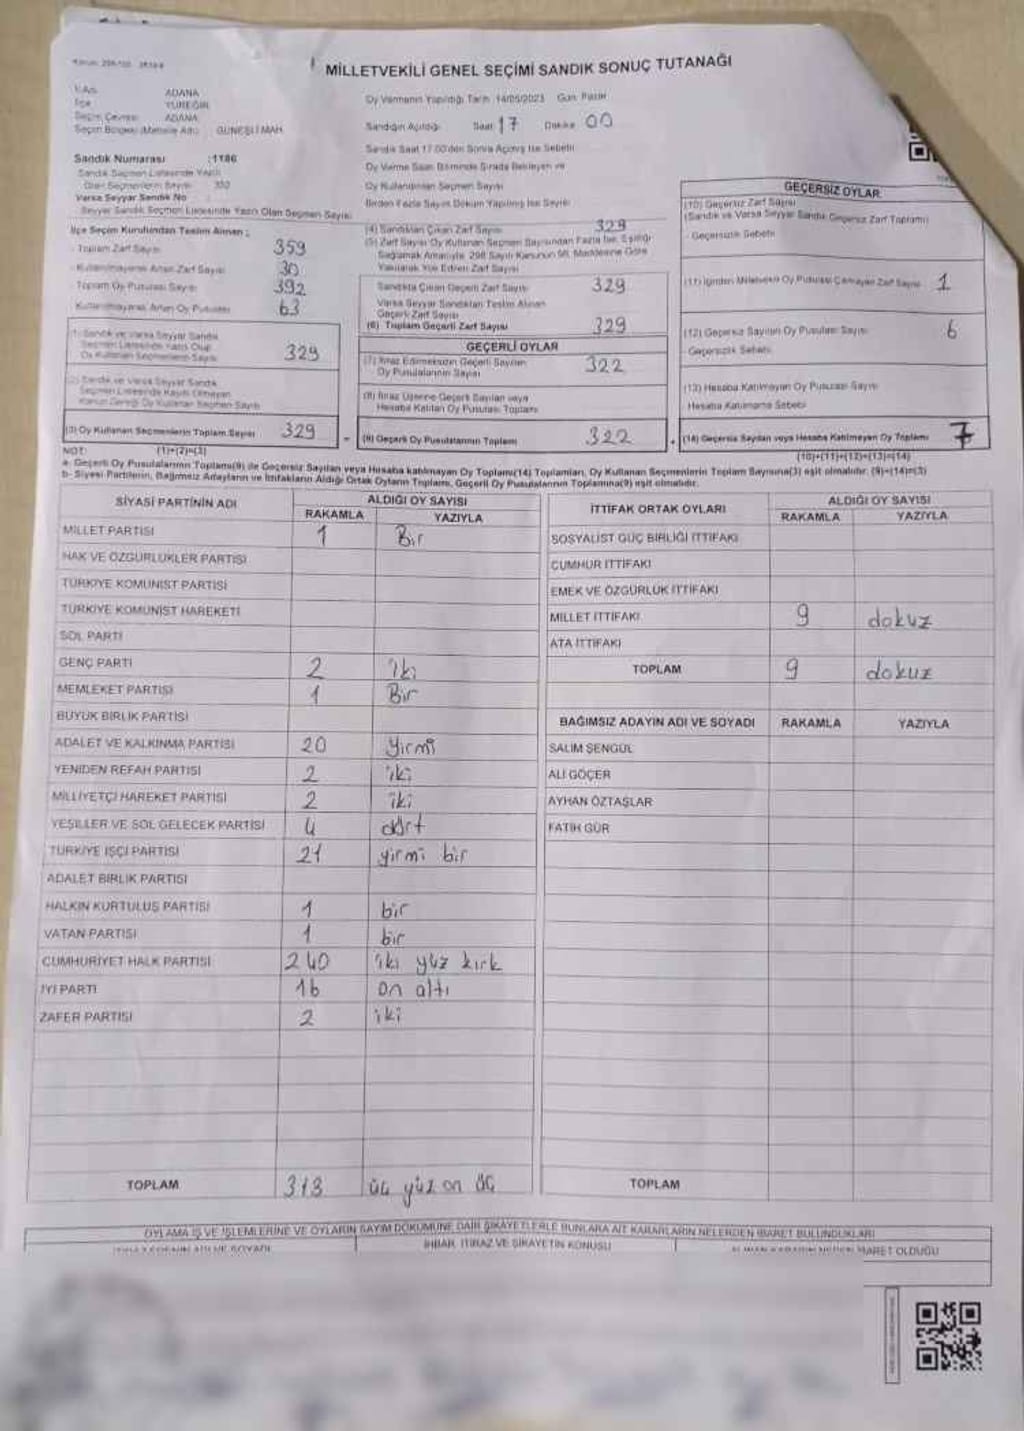 MİLLETVEKİLİ GENEL SEÇİMİ SANDIK SONUÇ TUTANAĞI
ADANA
İlçe YÜREĞİR
Seçim Çevresi ADANA
Seçim Bölgesi (Mahalle Adı) GÜNEŞLİ MAH.
Sandık Numarası :1186
Varsa Seyyar Sandık No
Seyyar Sandık Seçmen Listesinde Yazılı Olan Seçmen Sayısı
Oy Vermenin Yapıldığı Tarih 14/05/2023 Gün Pazar
Sandığın Açıldığı Saat 17 Dakika 00
Sandık Saat 17.00'den Sonra Açılmış İse Sebebi
Oy Kullandırılan Seçmen Sayısı
Birden Fazla Sayım Döküm Yapılmış İse Sayısı
İlçe Seçim Kurulundan Teslim Alınan ;
Toplam Zarf Sayısı 359
Kullanılmayarak Artan Zarf Sayısı 30
Toplam Oy Pusulası Sayısı 392
Kullanılmayarak Artan Oy Pusulası 63
(1) Sandık ve Varsa Seyyar Sandık
Seçmen Listesinde Yazılı Olup
Oy Kullanan Seçmenlerin Sayısı 329
(2) Sandık ve Varsa Seyyar Sandık
Seçmen Listesinde Kaydı Olmayan
Kanun Gereği Oy Kullanan Seçmen Sayısı
(3) Oy Kullanan Seçmenlerin Toplam Sayısı 329
(4) Sandıktan Çıkan Zarf Sayısı 329
(5) Zarf Sayısı Oy Kullanan Seçmen Sayısından Fazla İse, Eşitliği
Sağlamak Amacıyla, 298 Sayılı Kanunun 98. Maddesine Göre
Yakılarak Yok Edilen Zarf Sayısı
Sandıkta Çıkan Geçerli Zarf Sayısı 329
Varsa Seyyar Sandıktan Teslim Alınan
Geçerli Zarf Sayısı
(6) Toplam Geçerli Zarf Sayısı 329
GEÇERLİ OYLAR
(7) İtiraz Edilmeksizin Geçerli Sayılan
Oy Pusulalarının Sayısı 322
(8) İtiraz Üzerine Geçerli Sayılan veya
Hesaba Katılan Oy Pusulası Toplamı
(9) Geçerli Oy Pusulalarının Toplamı 322
GEÇERSİZ OYLAR
(10) Geçersiz Zarf Sayısı
(Sandık ve Varsa Seyyar Sandık Geçersiz Zarf Toplamı)
Geçersizlik Sebebi
(11) İçinden Milletvekili Oy Pusulası Çıkmayan Zarf Sayısı 1
(12) Geçersiz Sayılan Oy Pusulası Sayısı 6
Geçersizlik Sebebi
(13) Hesaba Katılmayan Oy Pusulası Sayısı
Hesaba Katılmama Sebebi
(14) Geçersiz Sayılan veya Hesaba Katılmayan Oy Toplamı 7
NOT: (1)+(2)=(3) (10)+(11)+(12)+(13)=(14)
a- Geçerli Oy Pusulalarının Toplamı(9) ile Geçersiz Sayılan veya Hesaba katılmayan Oy Toplamı(14) Toplamları, Oy Kullanan Seçmenlerin Toplam Sayısına(3) eşit olmalıdır. (9)+(14)=(3)
b- Siyasi Partilerin, Bağımsız Adayların ve İttifakların Aldığı Ortak Oyların Toplamı, Geçerli Oy Pusulalarının Toplamına(9) eşit olmalıdır.
SİYASİ PARTİNİN ADI ALDIĞI OY SAYISI
RAKAMLA YAZIYLA
MİLLET PARTİSİ 1 Bir
HAK VE ÖZGÜRLÜKLER PARTİSİ
TÜRKİYE KOMÜNİST PARTİSİ
TÜRKİYE KOMÜNİST HAREKETİ
SOL PARTİ
GENÇ PARTİ 2 iki
MEMLEKET PARTİSİ 1 Bir
BÜYÜK BİRLİK PARTİSİ
ADALET VE KALKINMA PARTİSİ 20 yirmi
YENİDEN REFAH PARTİSİ 2 iki
MİLLİYETÇİ HAREKET PARTİSİ 2 iki
YEŞİLLER VE SOL GELECEK PARTİSİ 4 dört
TÜRKİYE İŞÇİ PARTİSİ 21 yirmi bir
ADALET BİRLİK PARTİSİ
HALKIN KURTULUŞ PARTİSİ 1 bir
VATAN PARTİSİ 1 bir
CUMHURİYET HALK PARTİSİ 240 iki yüz kırk
İYİ PARTİ 16 on altı
ZAFER PARTİSİ 2 iki
TOPLAM 313 üç yüz on üç
İTTİFAK ORTAK OYLARI ALDIĞI OY SAYISI
RAKAMLA YAZIYLA
SOSYALİST GÜÇ BİRLİĞİ İTTİFAKI
CUMHUR İTTİFAKI
EMEK VE ÖZGÜRLÜK İTTİFAKI
MİLLET İTTİFAKI 9 dokuz
ATA İTTİFAKI
TOPLAM 9 dokuz
BAĞIMSIZ ADAYIN ADI VE SOYADI RAKAMLA YAZIYLA
SALİM ŞENGÜL
ALİ GÖÇER
AYHAN ÖZTAŞLAR
FATİH GÜR
TOPLAM
OYLAMA İŞ VE İŞLEMLERİNE VE OYLARIN SAYIM DÖKÜMÜNE DAİR ŞİKAYETLERLE BUNLARA AİT KARARLARIN NELERDEN İBARET BULUNDUKLARI
İHBAR, İTİRAZ VE ŞİKAYETİN KONUSU